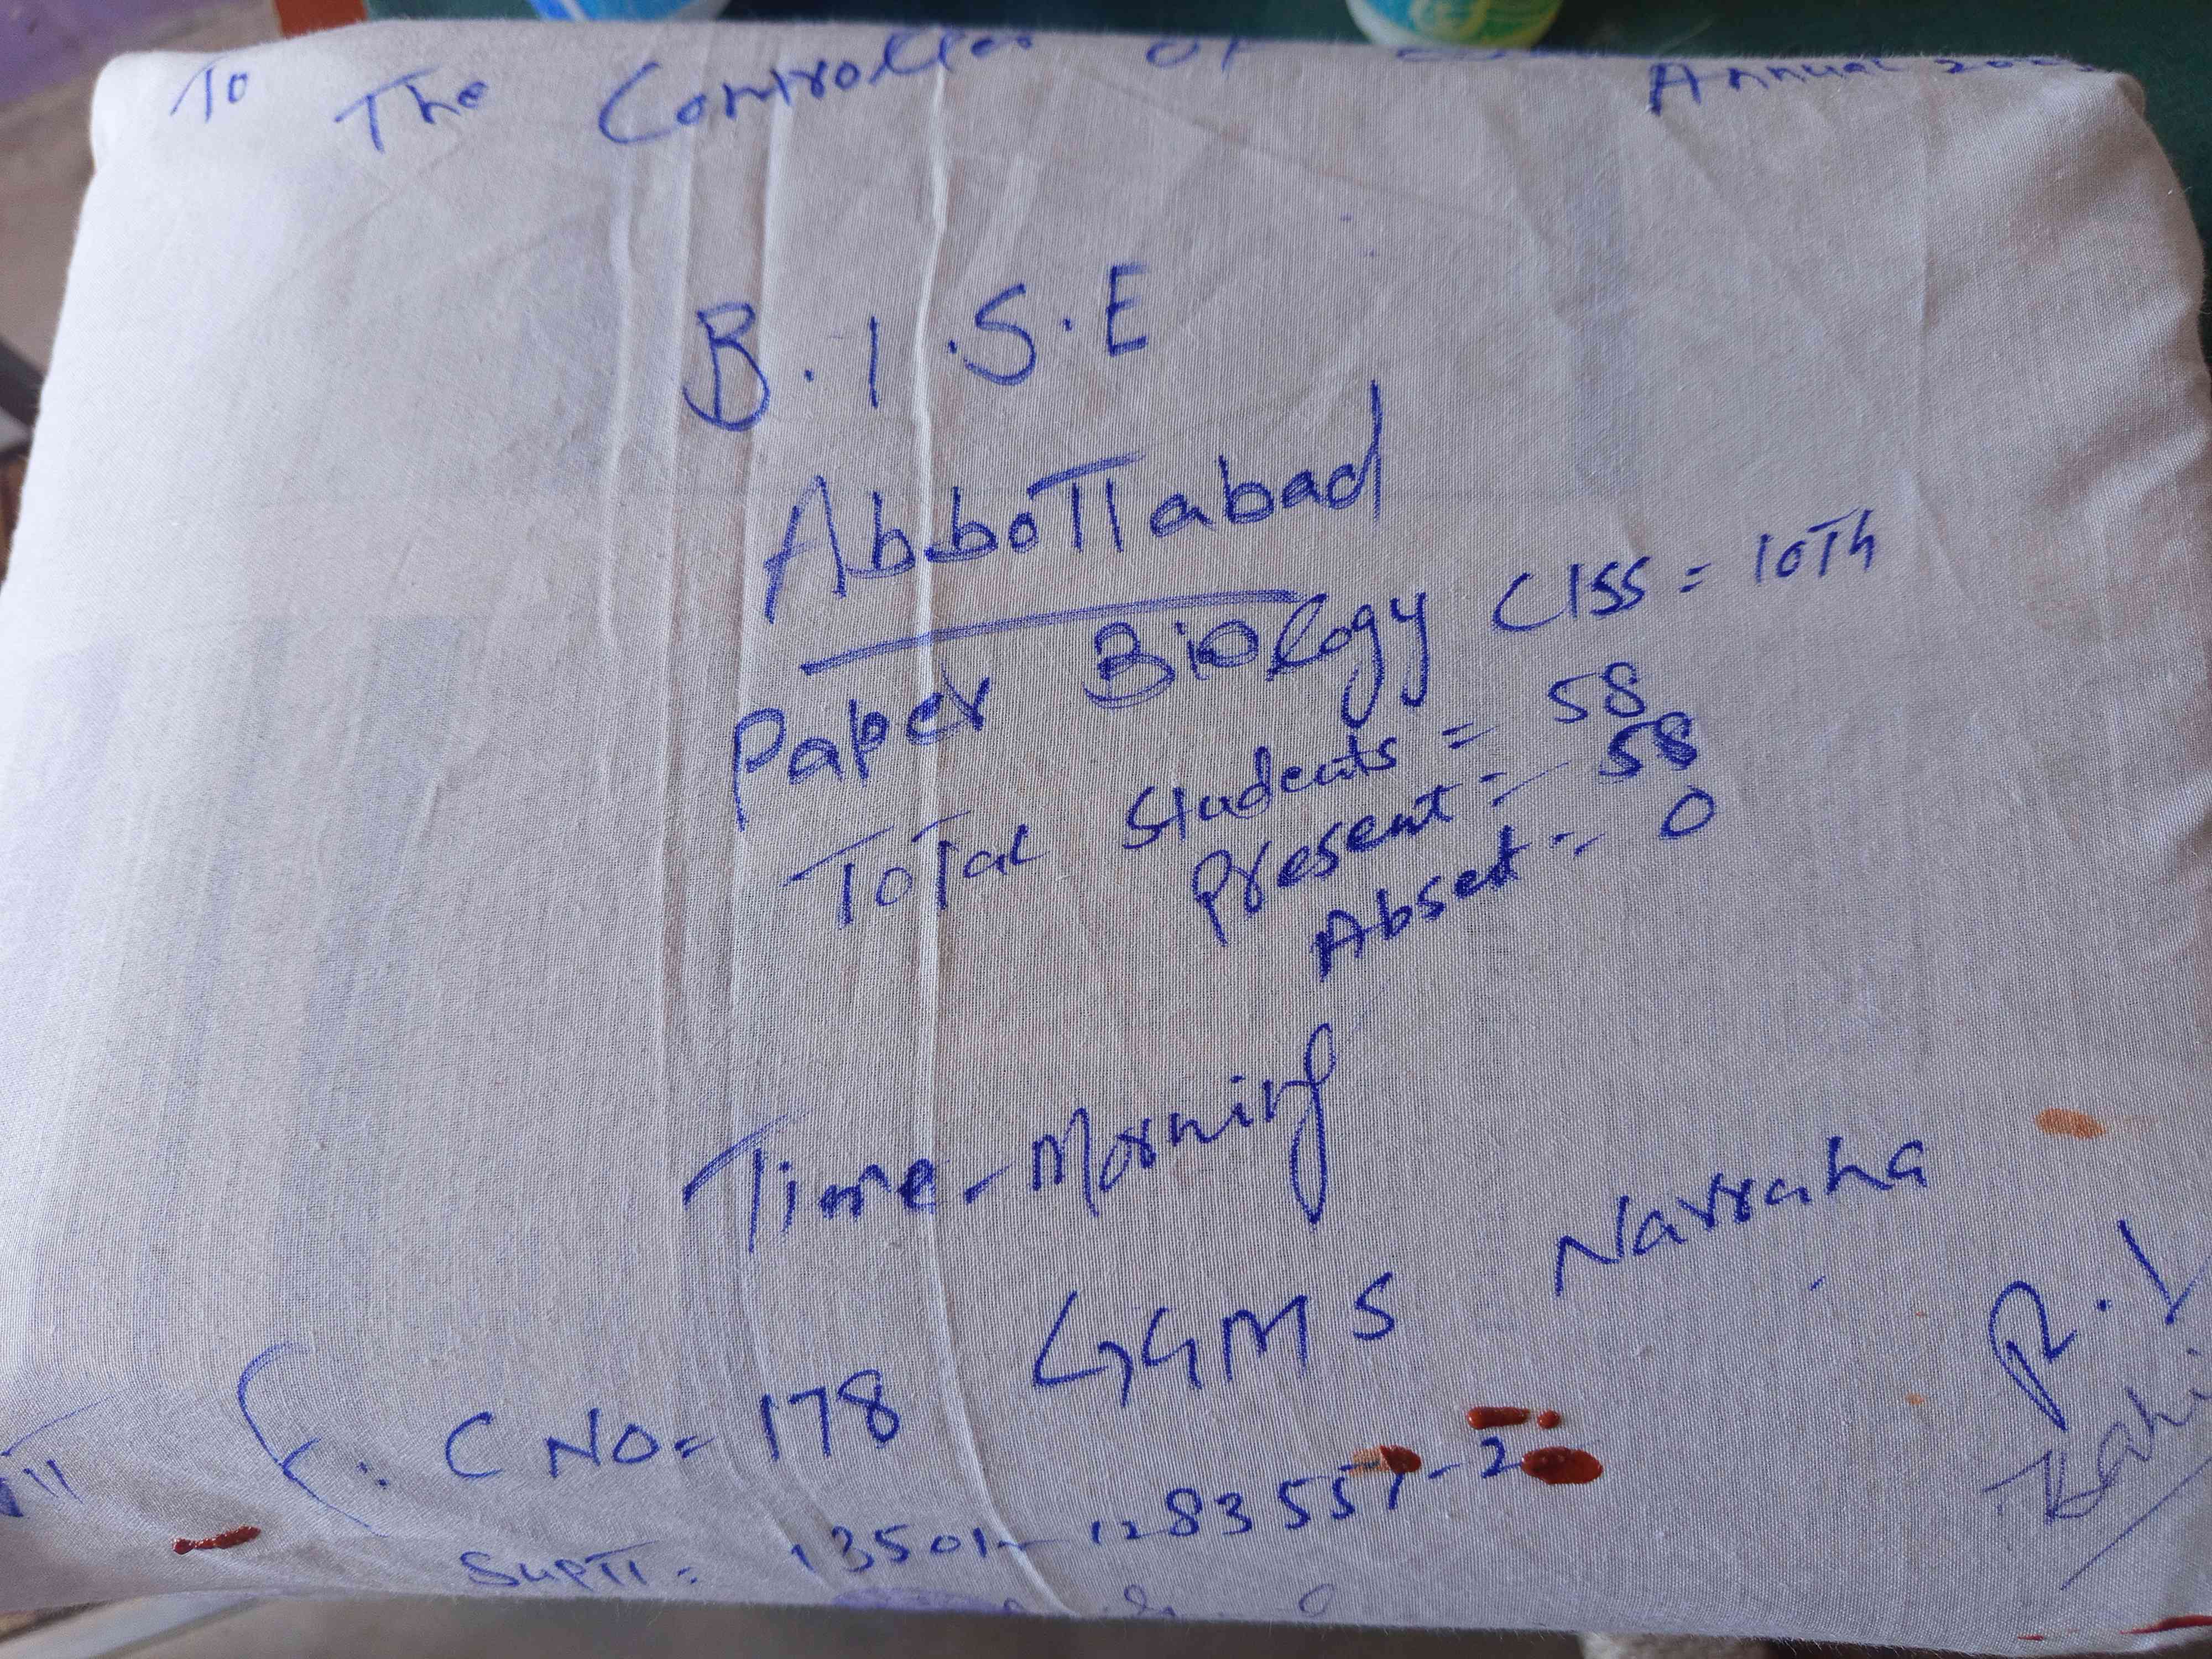 To The Controller of
Annual
B.I.S.E
Abbottabad
Paper Biology Clss = 10Th
Total Students = 58
Present = 58
Abset = 0
Time - Morning
C No = 178 GGMS Narraha
Suptt: 13501-1283557-2
R.I